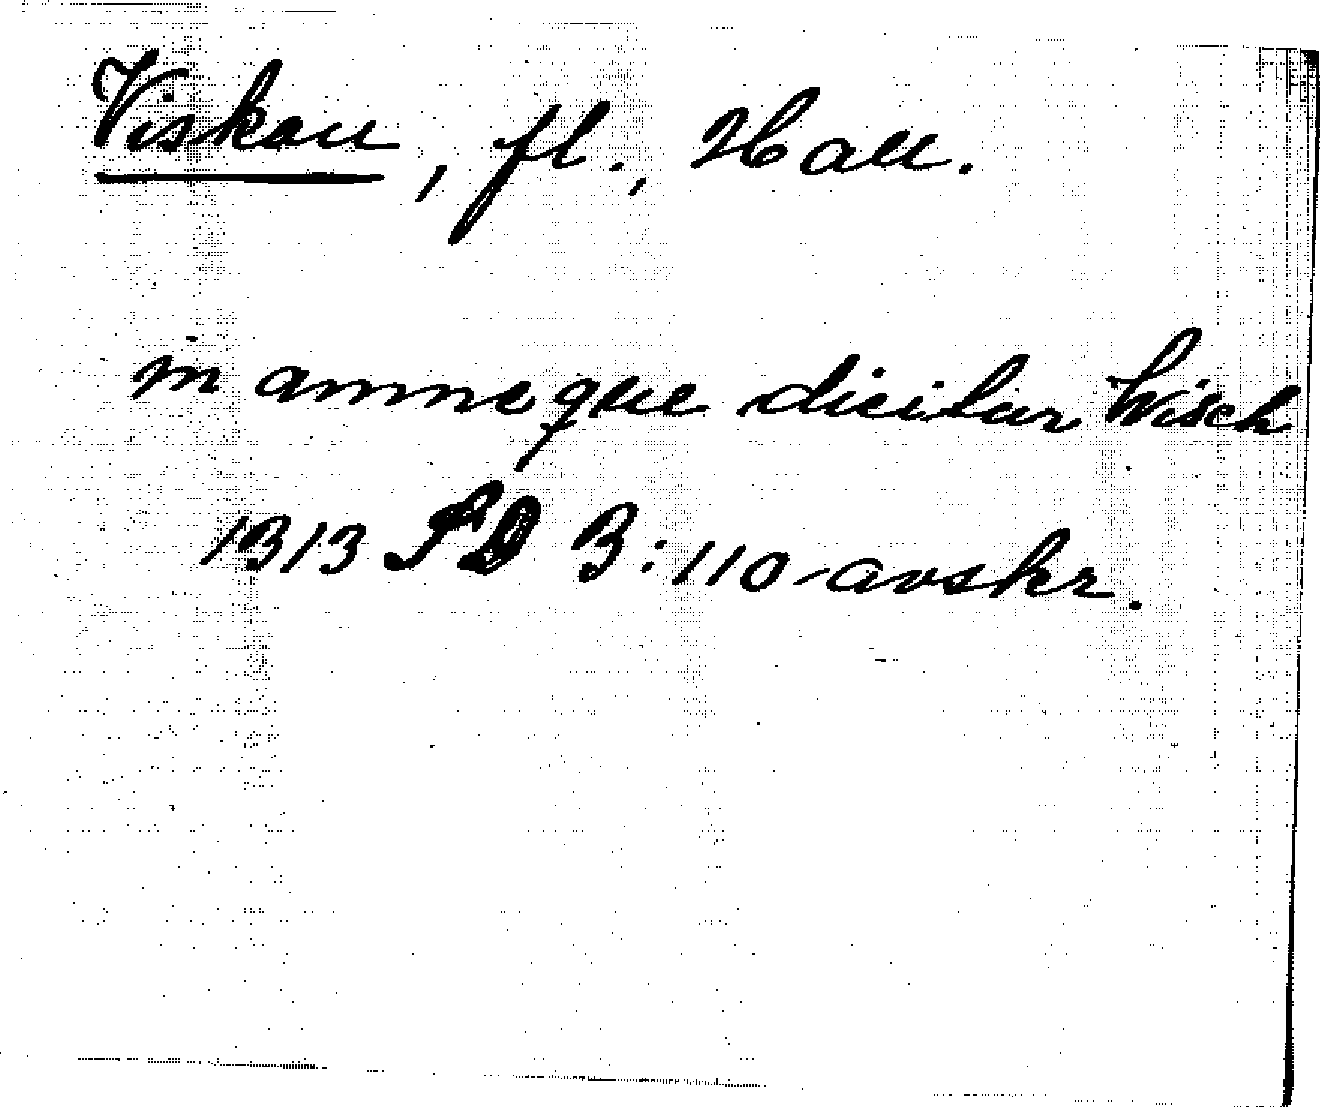 Viskan, fl., Hall.
in amne que dicitur Wisch
1313 SD 3:110 avskr.